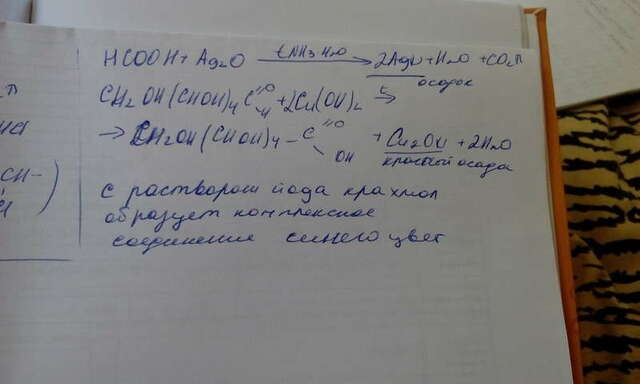 HCOOH + Ag2O t, NH3 H2O → 2Ag↓ + H2O + CO2↑
осадок
CH2OH(CHOH)4 C =O -H + 2Cu(OH)2 t →
→ CH2OH(CHOH)4 - C =O \ OH + Cu2O↓ + 2H2O
красный осадок
С раствором йода крахмал
образует комплексное
соединение синего цвет
CH-